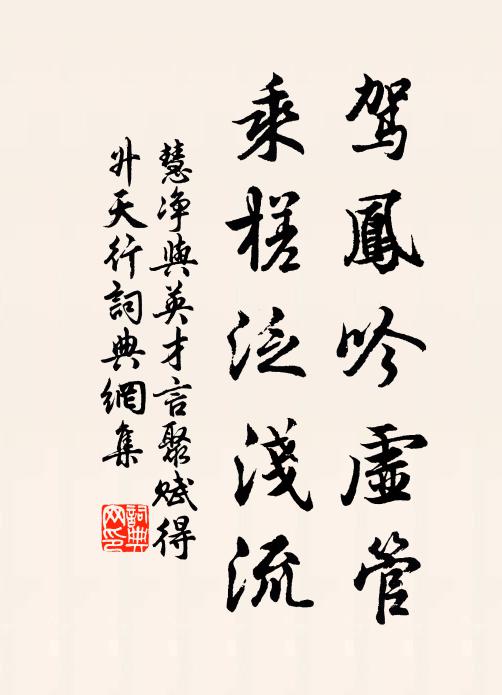 駕鳳吟虛管
乘槎泛淺流
慧净與英才言聚賦得
升天行詞典網集
詞典
网印